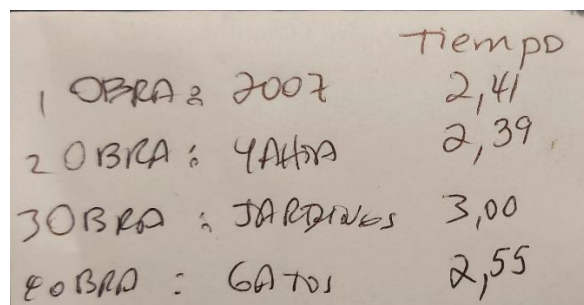 Tiempo
1 OBRA: 2007 2,41
2 OBRA: YAHOA 2,39
3 OBRA: JARDINES 3,00
4 OBRA: GATOS 2,55